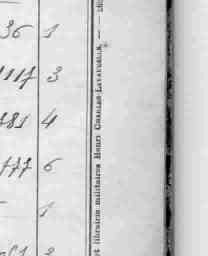 36 1
1117 3
781 4
777 6
1
2
et librairie militaires Henri Charles-Lavauzelle. —